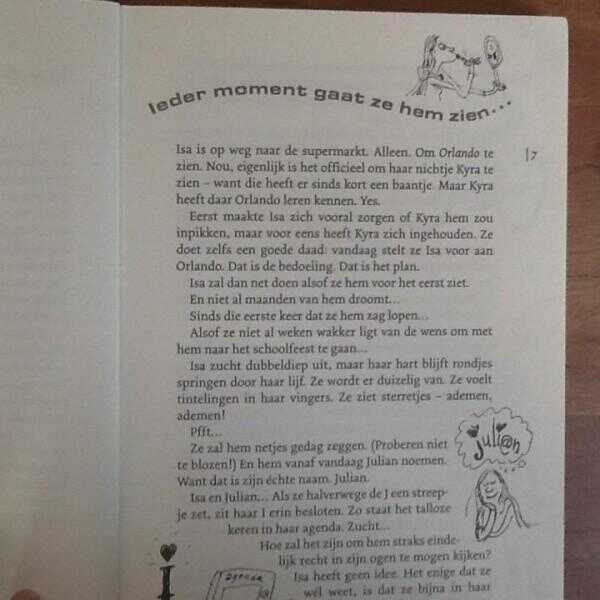 Ieder moment gaat ze hem zien...
Isa is op weg naar de supermarkt. Alleen. Om Orlando te
zien. Nou, eigenlijk is het officieel om haar nichtje Kyra te
zien – want die heeft er sinds kort een baantje. Maar Kyra
heeft daar Orlando leren kennen. Yes.
Eerst maakte Isa zich vooral zorgen of Kyra hem zou
inpikken, maar voor eens heeft Kyra zich ingehouden. Ze
doet zelfs een goede daad: vandaag stelt ze Isa voor aan
Orlando. Dat is de bedoeling. Dat is het plan.
Isa zal dan net doen alsof ze hem voor het eerst ziet.
En niet al maanden van hem droomt...
Sinds die eerste keer dat ze hem zag lopen...
Alsof ze niet al weken wakker ligt van de wens om met
hem naar het schoolfeest te gaan...
Isa zucht dubbeldiep uit, maar haar hart blijft rondjes
springen door haar lijf. Ze wordt er duizelig van. Ze voelt
tintelingen in haar vingers. Ze ziet sterretjes – ademen,
ademen!
Pfft...
Ze zal hem netjes gedag zeggen. (Proberen niet
te blozen!) En hem vanaf vandaag Julian noemen.
Want dat is zijn échte naam. Julian.
Isa en Julian... Als ze halverwege de J een streep-
je zet, zit haar I erin besloten. Zo staat het talloze
keren in haar agenda. Zucht...
Hoe zal het zijn om hem straks einde-
lijk recht in zijn ogen te mogen kijken?
Isa heeft geen idee. Het enige dat ze
wél weet, is dat ze bijna in haar
|7
Juli@n
I
agenda